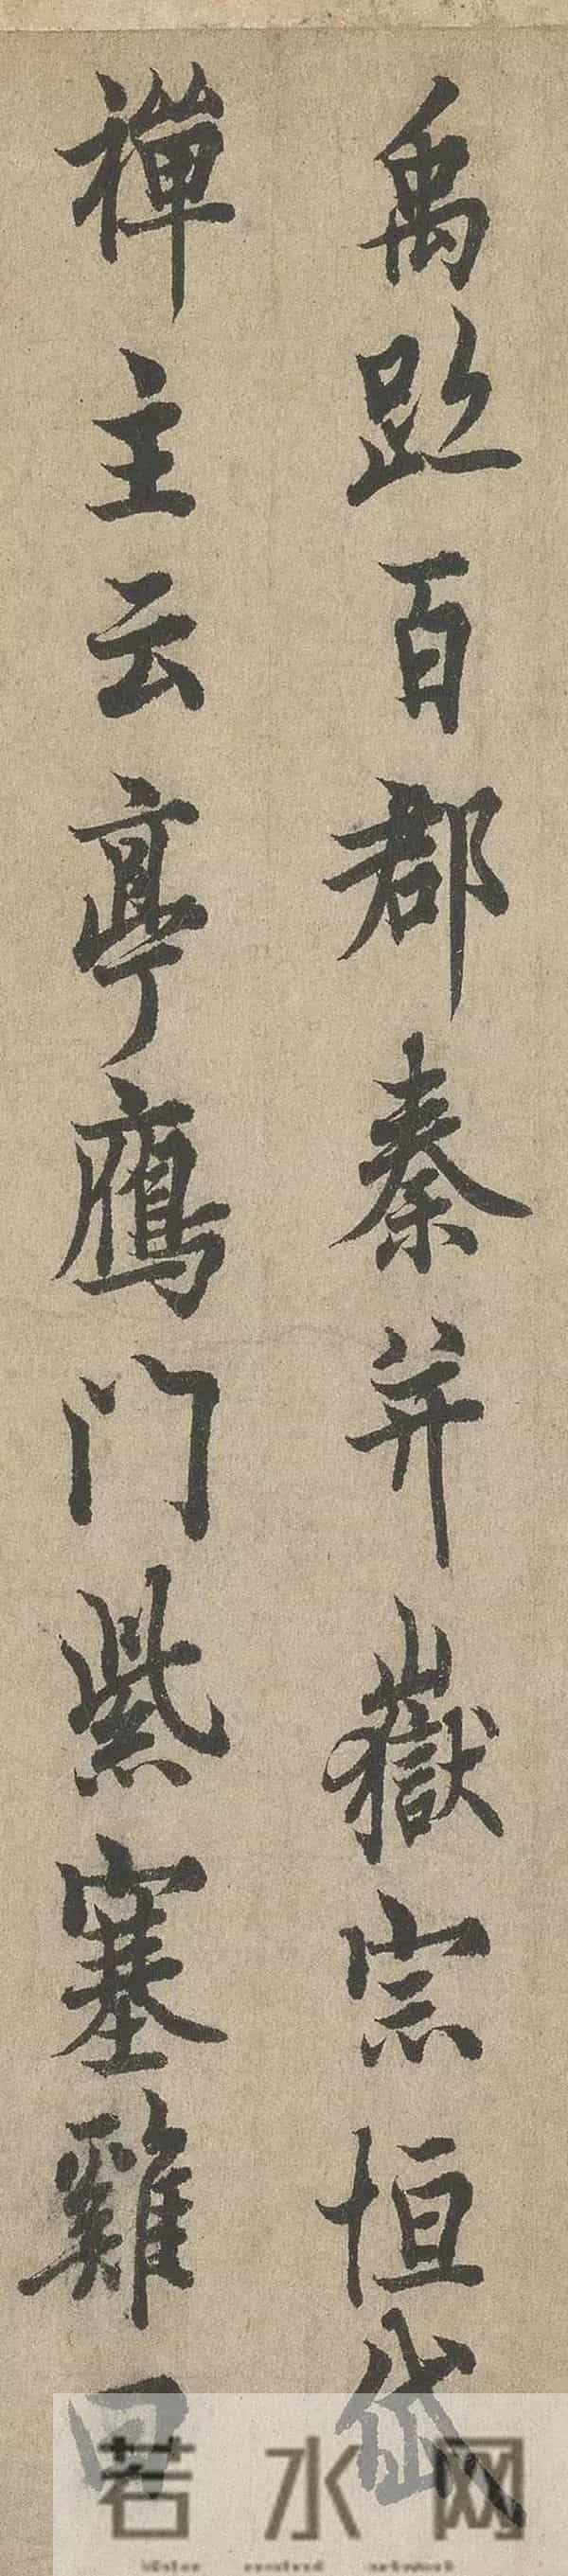 禹跡百郡秦并嶽宗恒岱
禪主云亭鴈門紫塞雞田
若水网